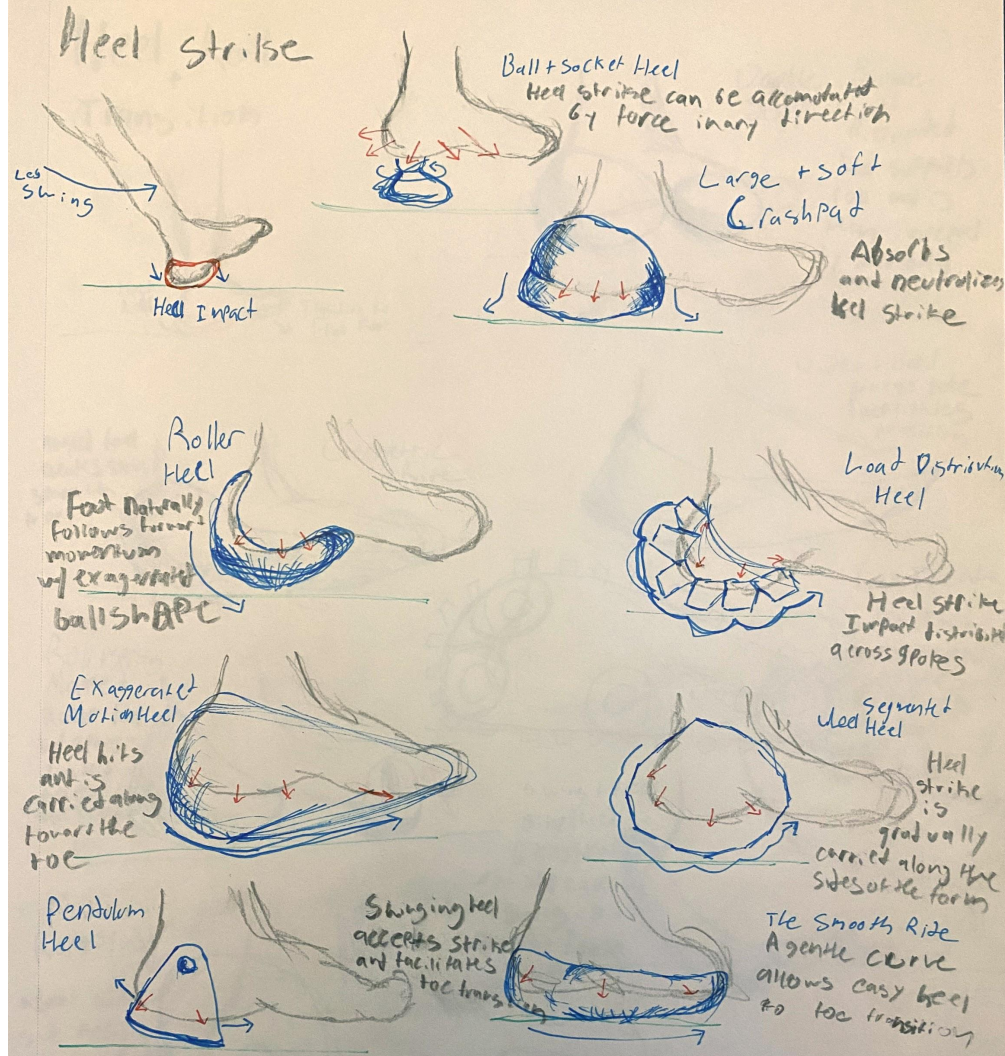 Heel strike
Leg
Swing
Heel Impact
Ball + Socket Heel
Heel strike can be accomodated
by force in any direction
Large + soft
Crashpad
Absorbs
and neutralizes
heel strike
Roller
Heel
Foot Naturally
follows forward
momentum
w/ exaggerated
ball shape
Load Distribution
Heel
Heel strike
Impact distributed
across spokes
Exaggerated
Motion Heel
Heel hits
and is
carried along
toward the
toe
Segmented
Heel
Heel
strike
is
gradually
carried along the
sides of the form
Pendulum
Heel
Swinging heel
accepts strike
and facilitates
toe transition
The Smooth Ride
A gentle curve
allows easy heel
to toe transition